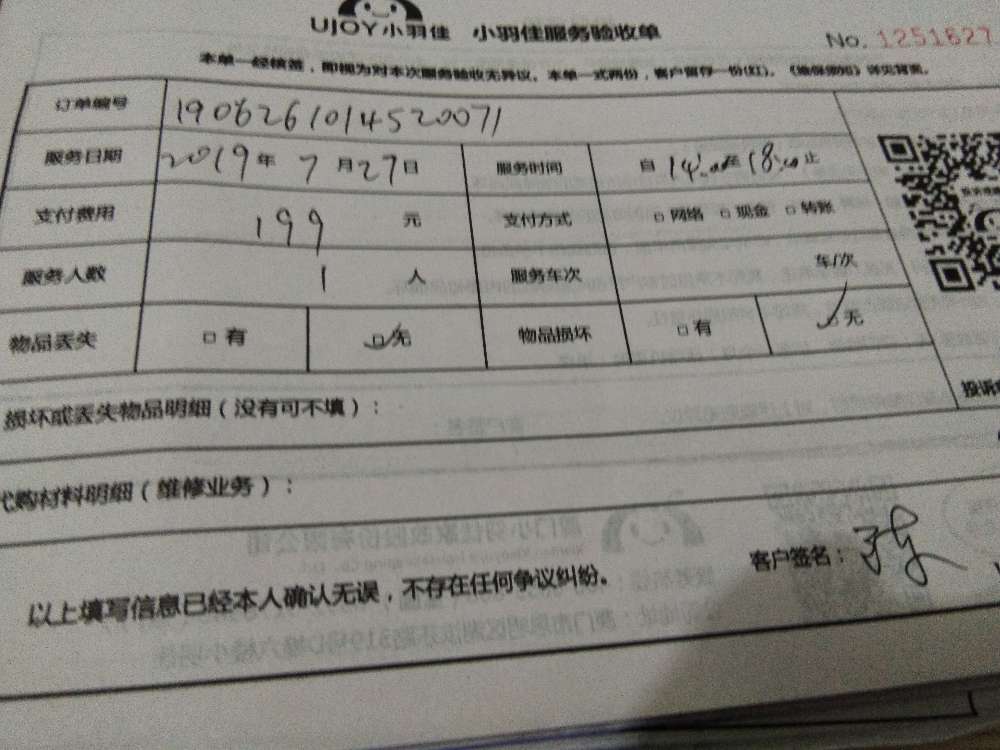 UJOY小羽佳 小羽佳服务验收单
No. 1251827
本单一经核签，即视为对本次服务验收无异议。本单一式两份，客户留存一份(红)。《维保须知》详见背面。
订单编号 1906261014520071
服务日期 2019年7月27日 服务时间 自14:00至18:00止
支付费用 199元 支付方式 □网络 □现金 □转账
服务人数 1人 服务车次 车/次
物品丢失 □有 □无 物品损坏 □有 □无
损坏或丢失物品明细（没有可不填）：
投诉
代购材料明细（维修业务）：
客户签名：
以上填写信息已经本人确认无误，不存在任何争议纠纷。